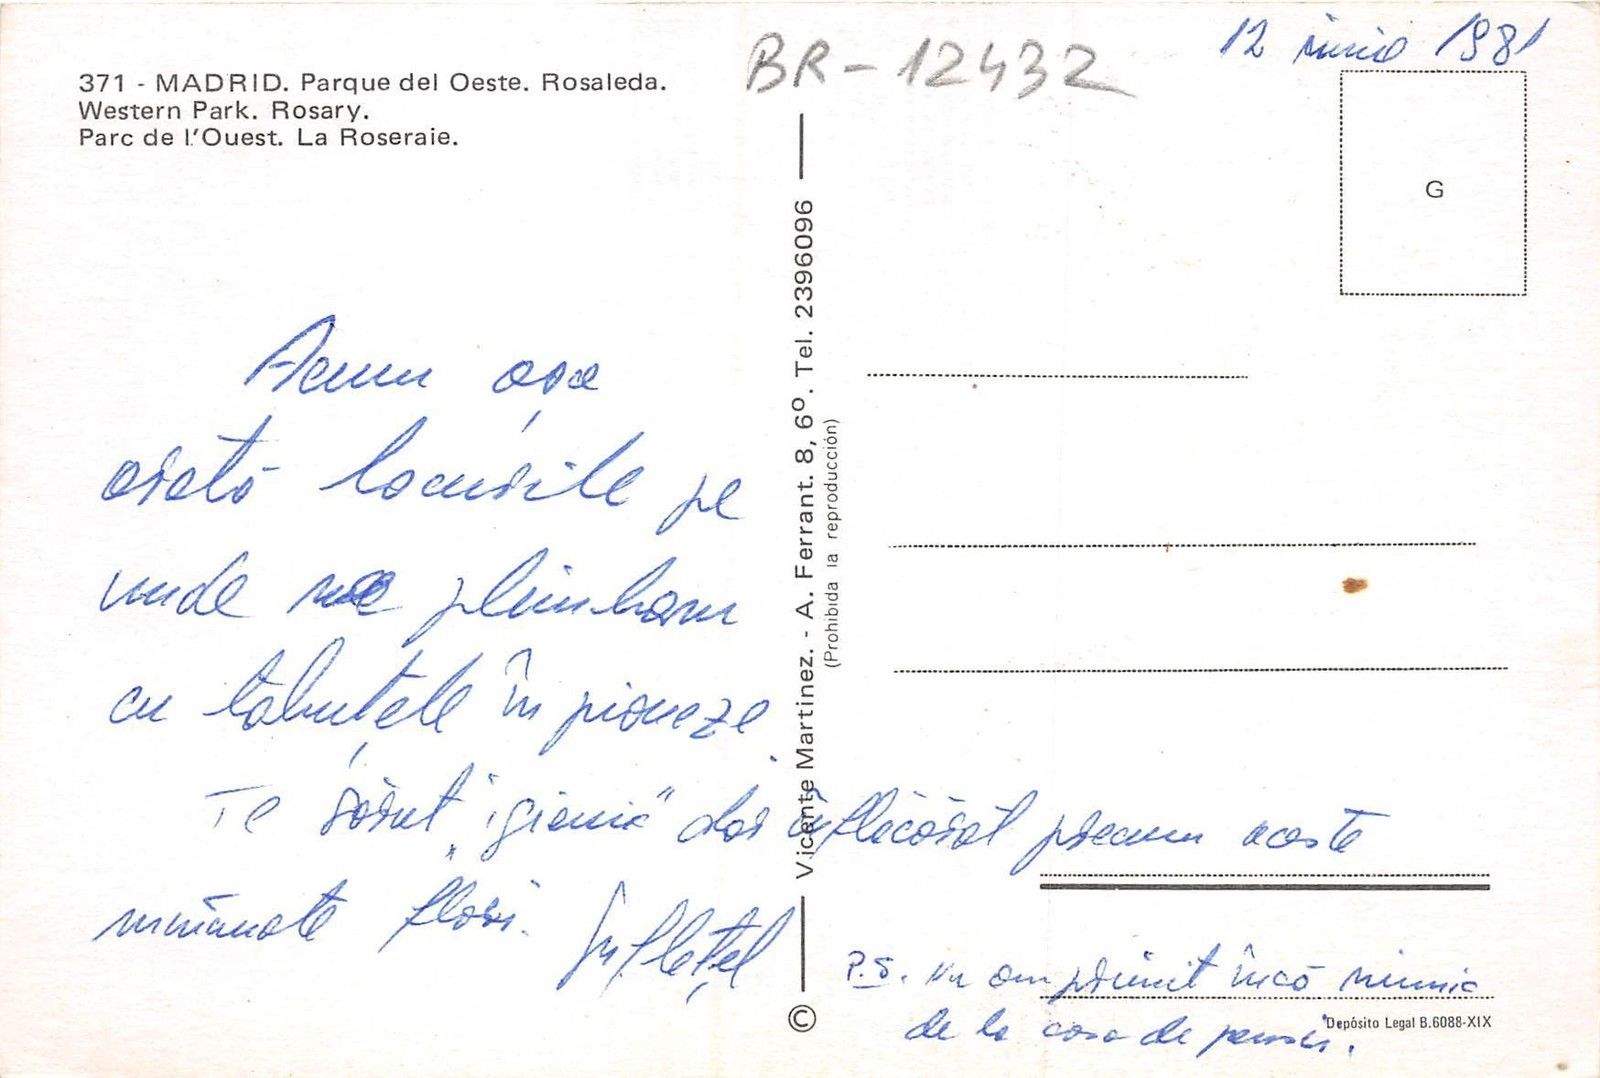 BR-12432
12 iunie 1981
371 - MADRID. Parque del Oeste. Rosaleda.
Western Park. Rosary.
Parc de l'Ouest. La Roseraie.
G
Acum așa
arată locurile pe
unde ne plimbam
cu tăbuțele în pioneze.
Te sărut "igienic" dar înflăcărat precum aceste
minunate flori.
Sufletel
P.S. Nu am primit încă nimic
de la casa de pensii.
Vicente Martinez. - A. Ferrant. 8, 6º. Tel. 2396096
(Prohibida la reproducción)
©
Depósito Legal B.6088-XIX